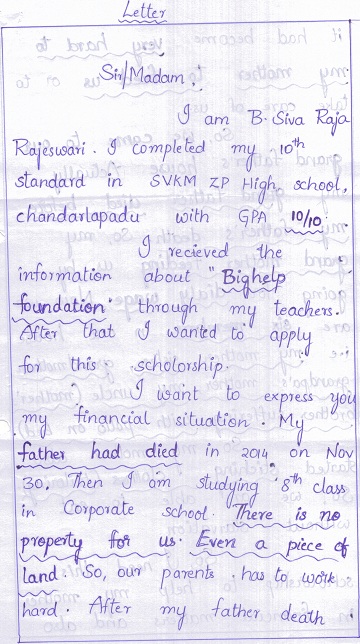 Letter
Sir/Madam,
I am B. Siva Raja
Rajeswari. I completed my 10th
standard in SVKM ZP High, school,
chandarlapadu with GPA 10/10.
I recieved the
information about "Bighelp
foundation" through my teachers.
After that I wanted to apply
for this scholorship.
I want to express you
my financial situation. My
father had died in 2014 on Nov
30. Then I am studying 8th class
in Corporate school. There is no
property for us. Even a piece of
land. So, our parents has to work
hard. After my father death